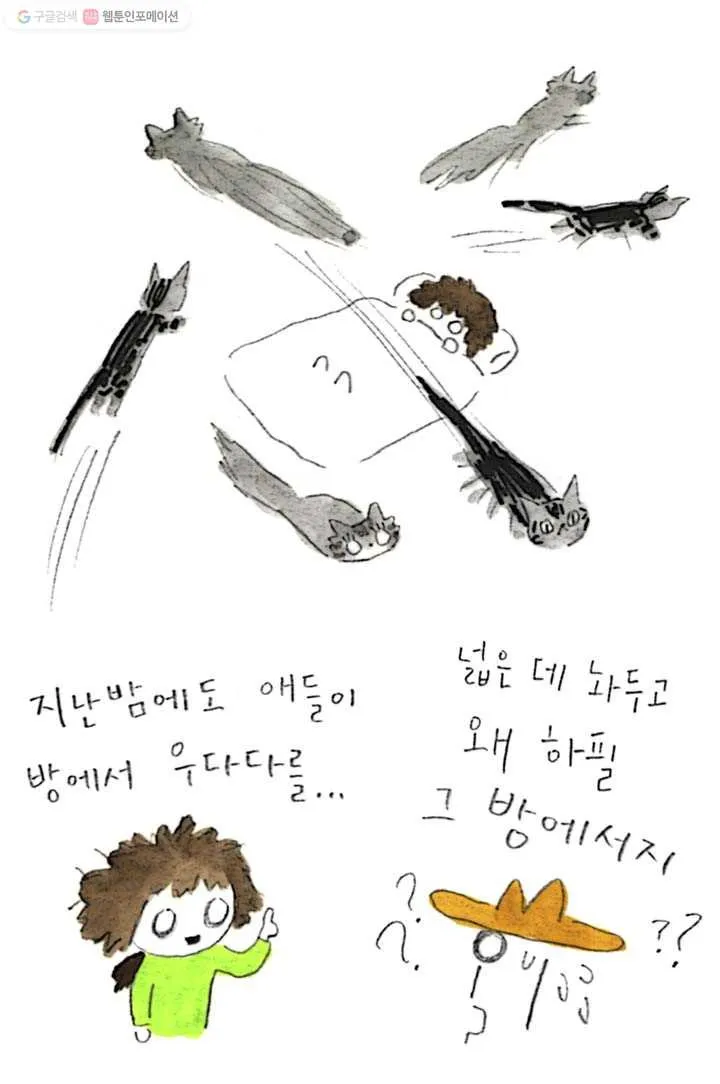 구글검색 웹툰인포메이션
지난밤에도 애들이
방에서 우다다를...
넓은 데 놔두고
왜 하필
그 방에서지
?
?
??